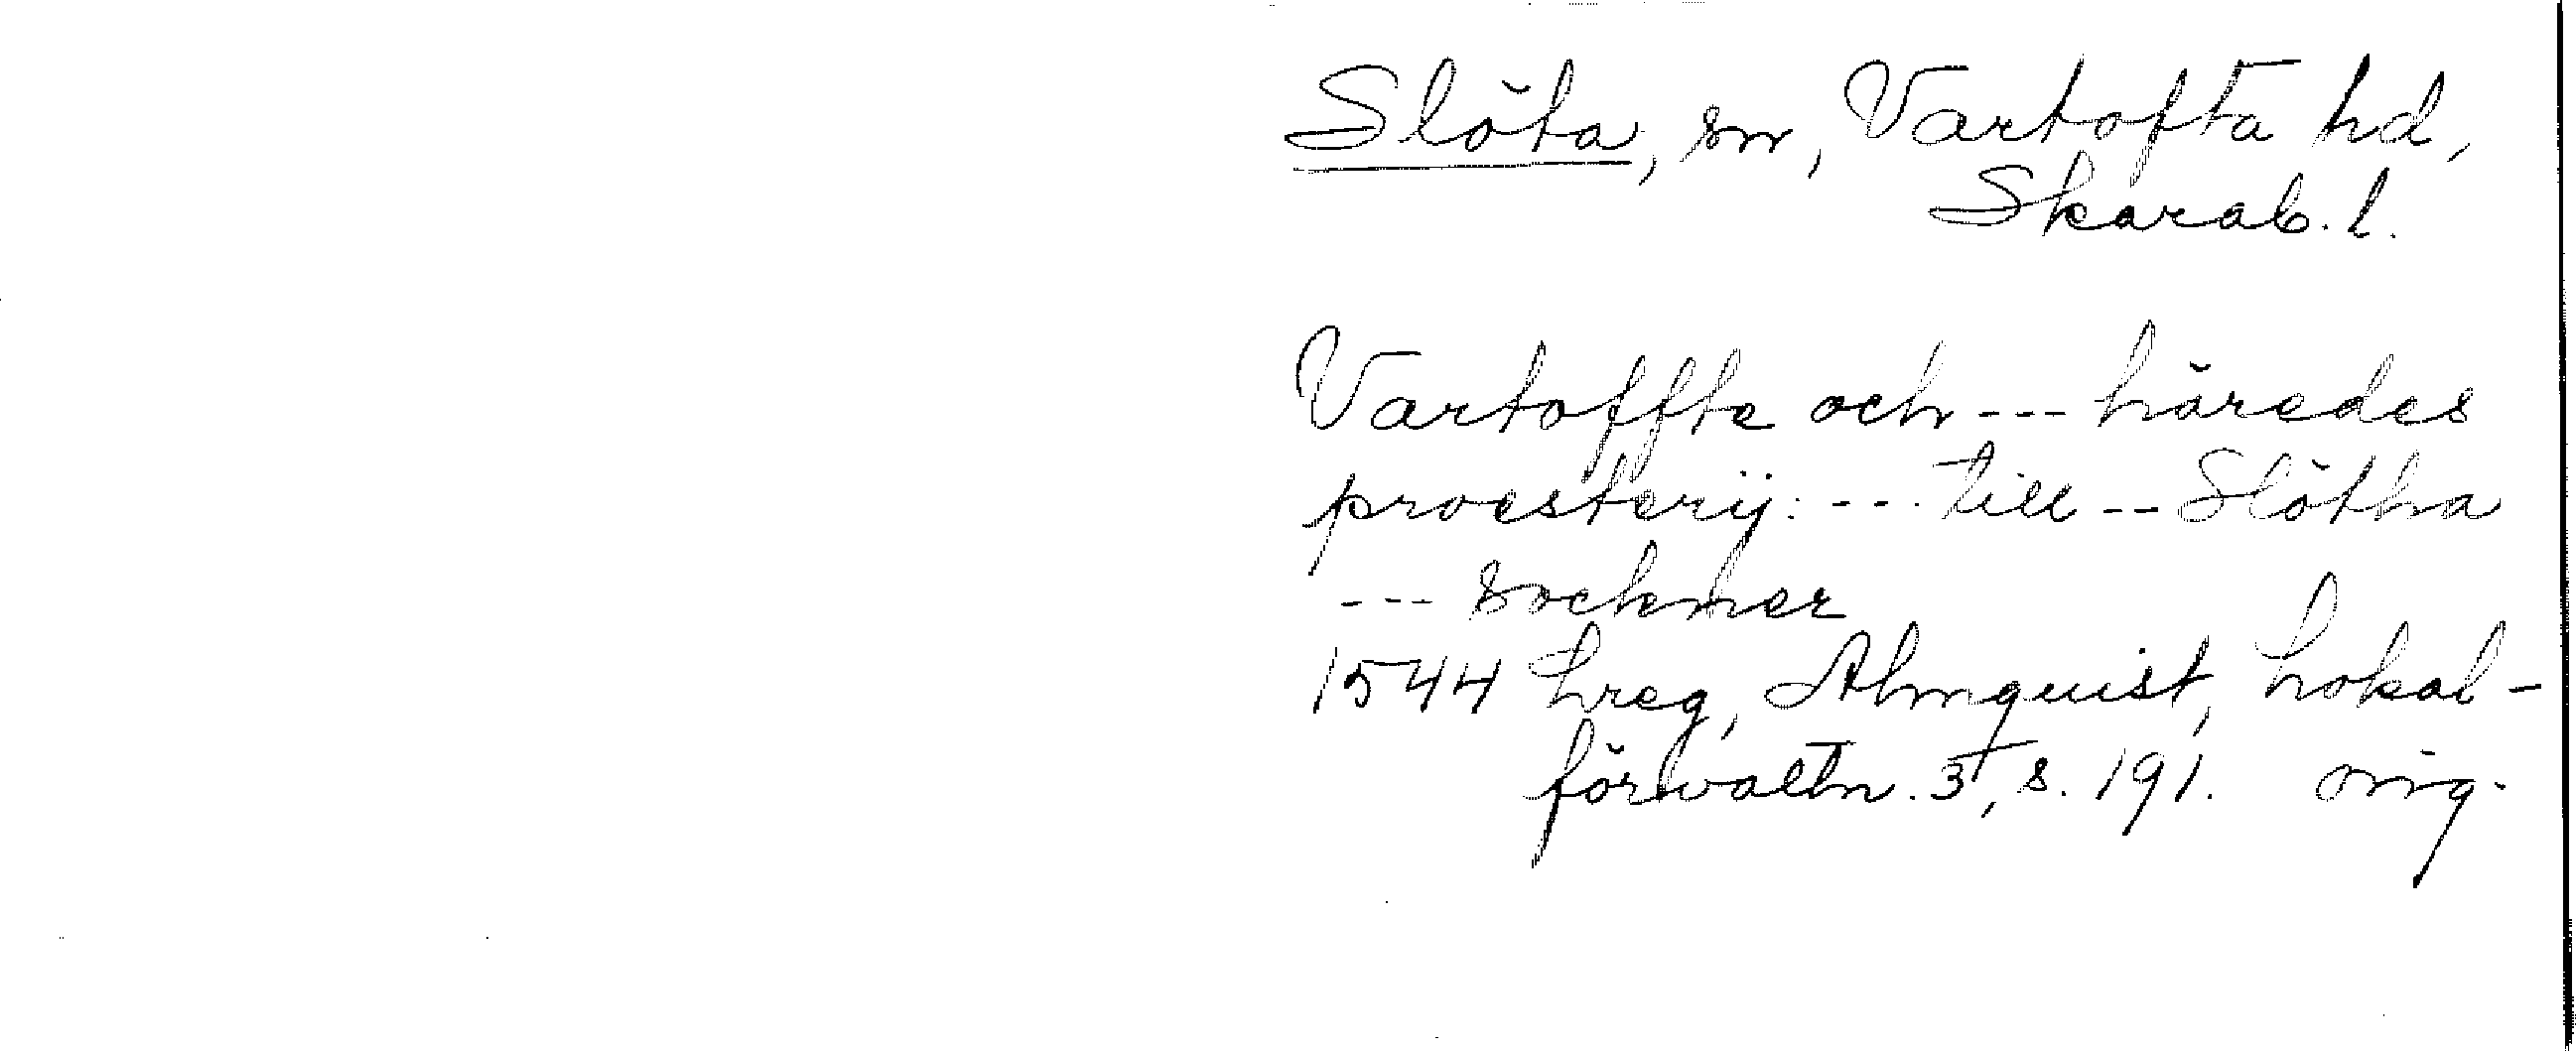 Slöta, sn, Vartofta hd,
Skarab. l.
Vartoffte och --- häredes
proesterij: --- till -- Slötha
--- Sockner
1544 Lreg, Almquist, Lokal-
förvaltn. 3, s. 191. orig.